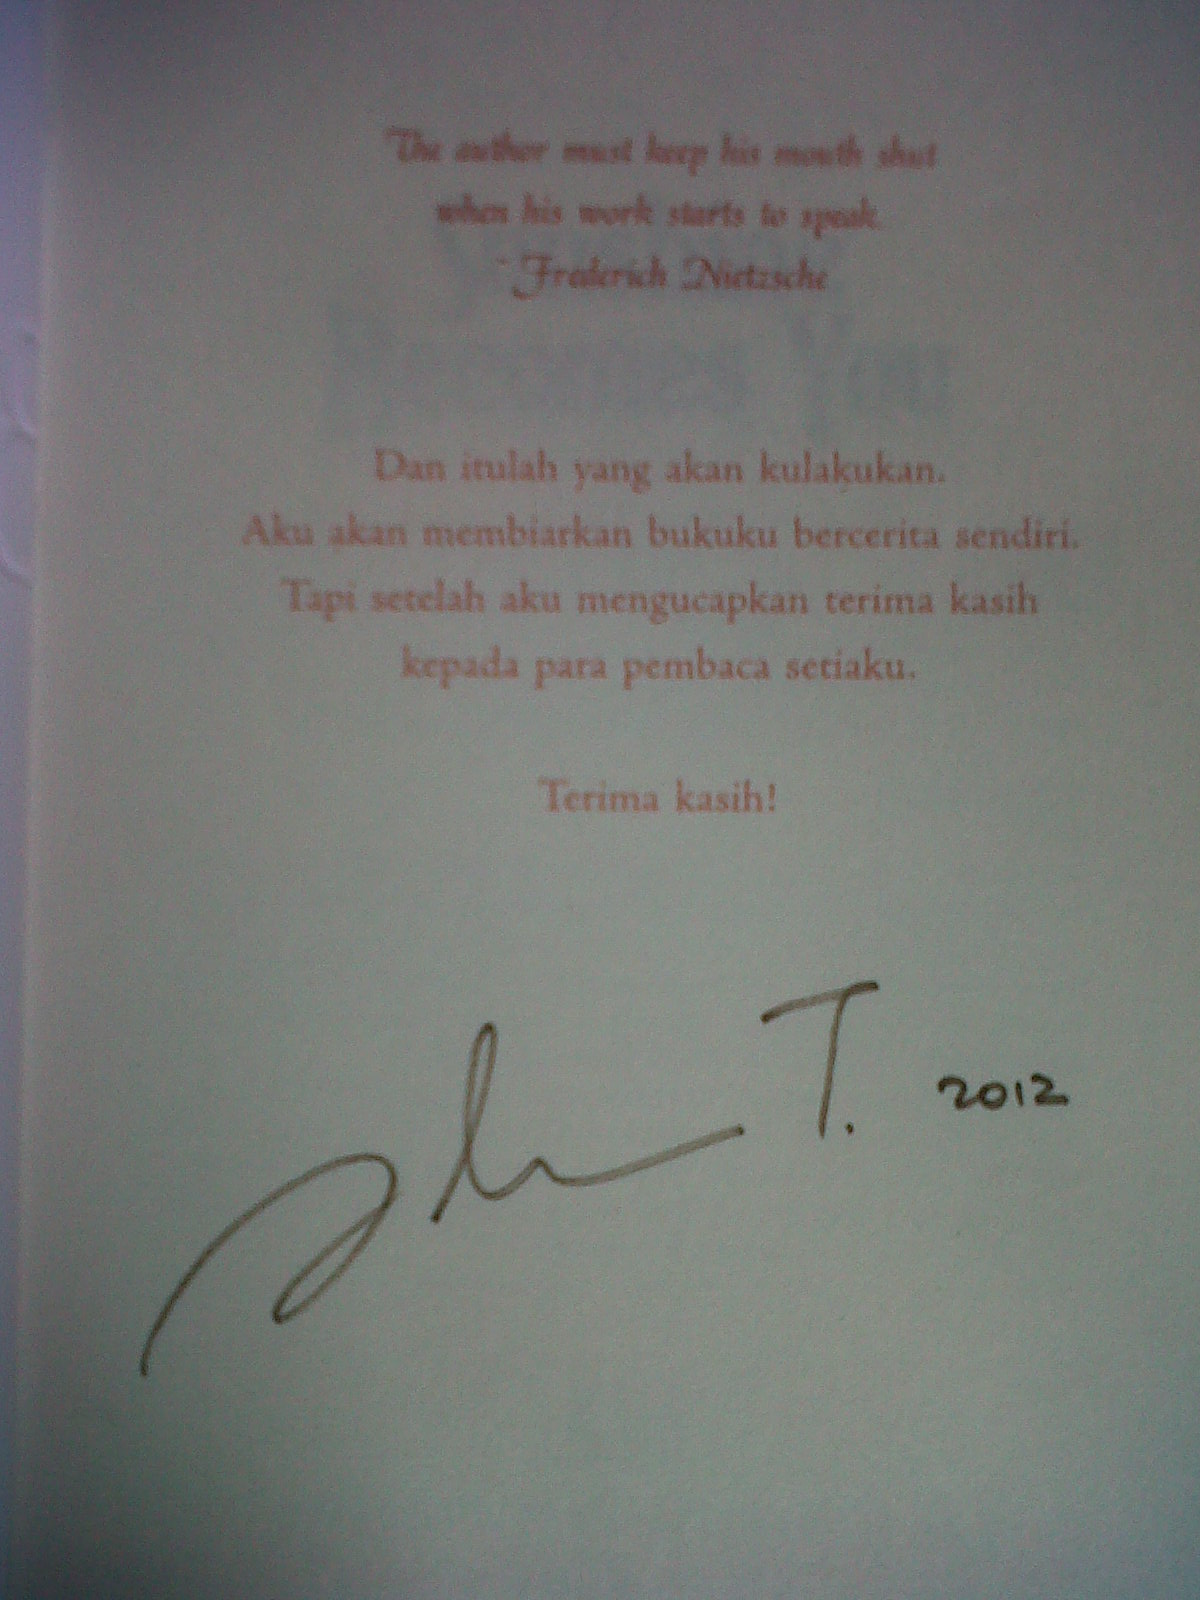 The author must keep his mouth shut
when his work starts to speak.
~ Frederich Nietzsche
Dan itulah yang akan kulakukan.
Aku akan membiarkan bukuku bercerita sendiri.
Tapi setelah aku mengucapkan terima kasih
kepada para pembaca setiaku.
Terima kasih!
T. 2012